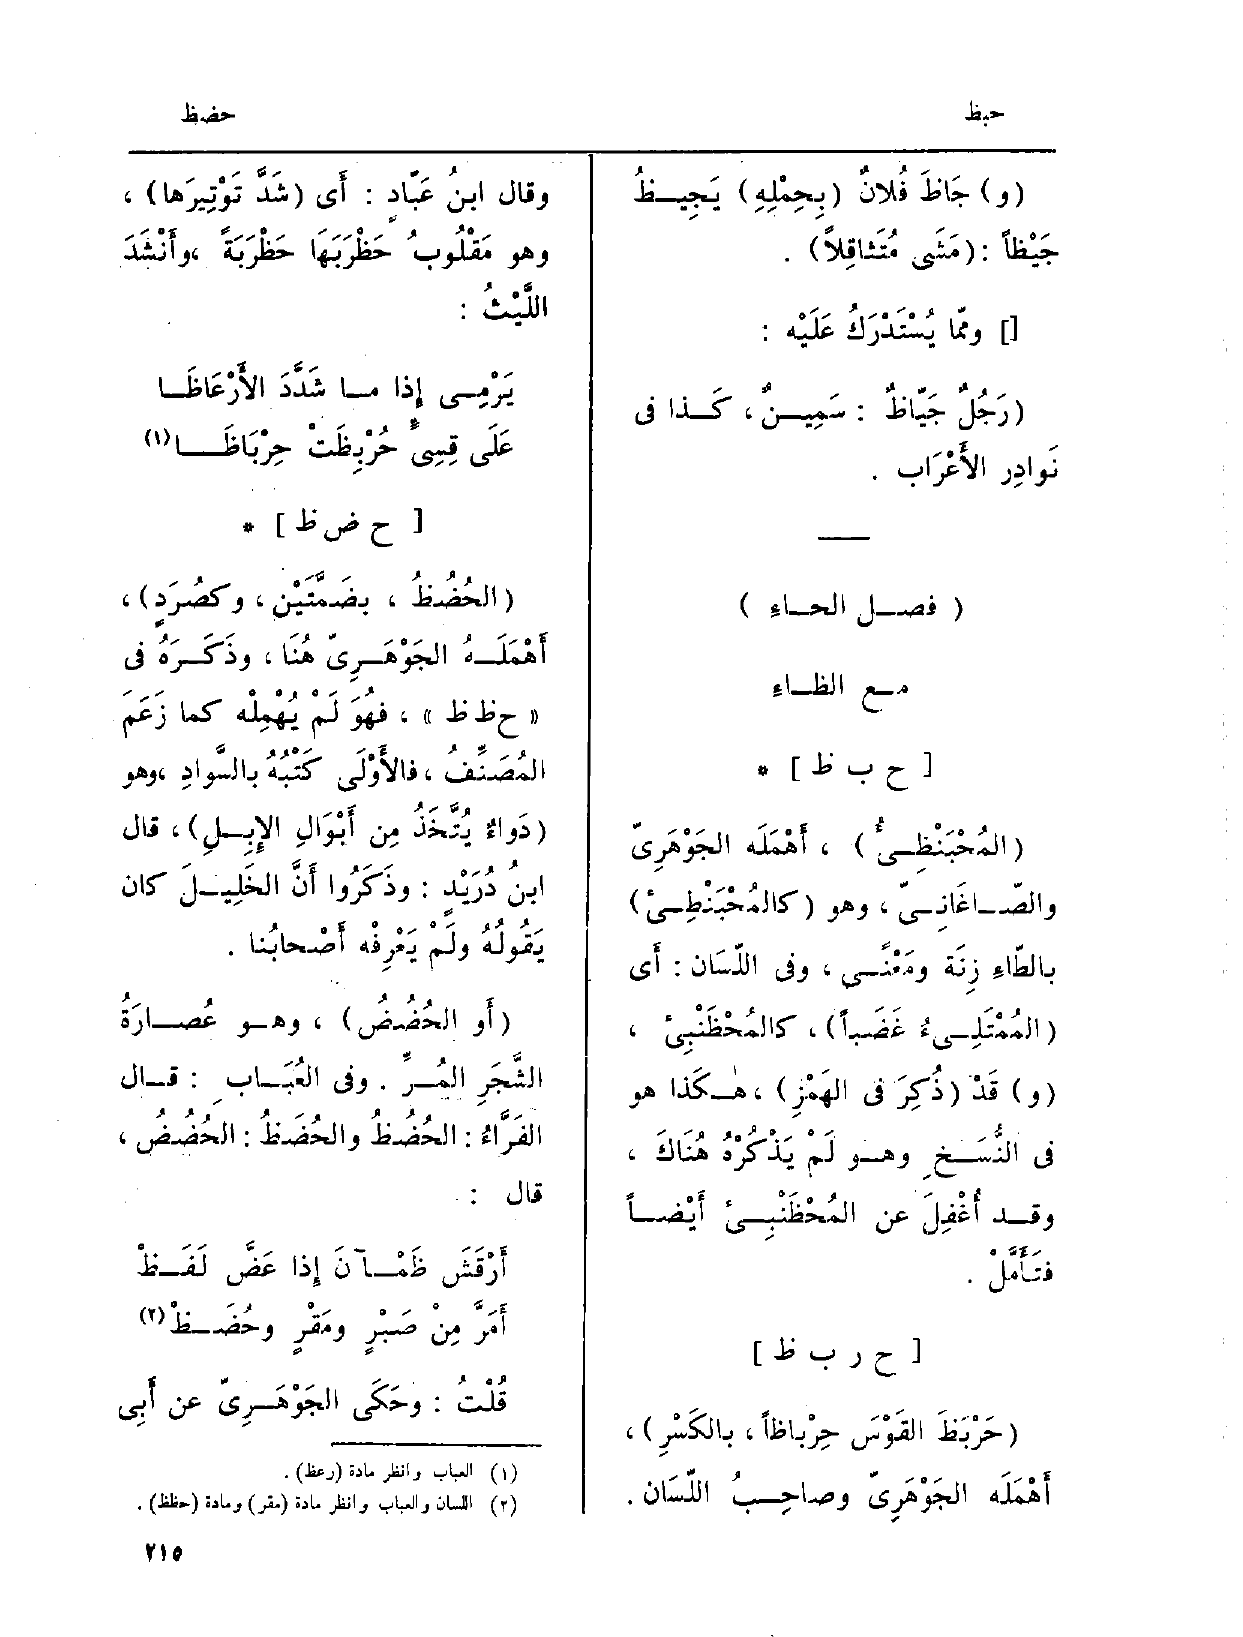 حبظ
حضظ
(و) جَاظَ فُلانٌ (بِحِمْلِهِ) يَجِيــظُ
جَيْظاً : (مَشَى مُتَثاقِلاً) .
[] ومّا يُسْتَدْرَكُ عَلَيْه :
(رَجُلٌ جَيّاظٌ : سَمِيــنٌ ، كَــذا فى
نَوادِر الأَعْرَاب .
( فصــل الحــاء )
مــع الظــاء
[ ح ب ظ ] *
(المُحْبَنْظِــىُٔ) ، أَهْمَلَه الجَوْهَرِىّ
والصّــاغَانِــىّ ، وهو (كالمُحْبَنْطِــىْٔ)
بالطّاءِ زِنَة ومَعْنًــى ، وفى اللّسَان : أَى
(المُمْتَلِــىءُ غَضَبــاً) ، كالمُحْظَنْبِىْٔ ،
(و) قَدْ (ذُكِرَ فى الهَمْزِ) ، هــكَذا هو
فى النُّسَــخِ وهــو لَمْ يَذْكُرْهُ هُنَاكَ ،
وقــد أُغْفِلَ عن المُحْظَنْبِــىْٔ أَيْضــاً
فتَأَمَّلْ .
[ ح ر ب ظ ]
(حَرْبَظَ القَوْسَ حِرْباظاً ، بالكَسْرِ) ،
أَهْمَلَه الجَوْهَرِىّ وصاحِــبُ اللّسَان .
وقال ابنُ عَبّادٍ : أَى (شَدَّ تَوْتِيرَها) ،
وهو مَقْلُوبُ حَظْرَبَهَا حَظْرَبَةً ،وأَنْشَدَ
اللَّيْثُ :
يَرْمِــى إِذا مــا شَدَّدَ الأَرْعَاظَــا
عَلَى قِسِىٍّ حُرْبِظَتْ حِرْبَاظَــا(١)
[ ح ض ظ ] *
(الحُضُظُ ، بضَمَّتَيْن ، وكصُرَدٍ) ،
أَهْمَلَــهُ الجَوْهَــرِىّ هُنَا ، وذَكَــرَهُ فى
« ح ظ ظ » ، فهُوَ لَمْ يُهْمِلْه كما زَعَمَ
المُصَنِّفُ ، فالأَوْلَى كَتْبُهُ بالسَّوادِ ،وهو
(دَواءٌ يُتَّخَذُ مِن أَبْوَالِ الإِبِــلِ) ، قال
ابنُ دُرَيْدٍ : وذَكَرُوا أَنَّ الخَلِيــلَ كان
يَقُولُهُ ولَمْ يَعْرِفْه أَصْحابُنا .
(أَو الحُضُضُ) ، وهــو عُصــارَةُ
الشَّجَرِ المُــرِّ . وفى العُبَــابِ : قــال
الفَرَّاءُ : الحُضُظُ والحُضَظُ : الحُضُضُ ،
قال :
أَرْقَشَ ظَمْــآنَ إِذا عَضَّ لَفَــظْ
أَمَرَّ مِنْ صَبْرٍ ومَقْرٍ وحُضَــظْ(٢)
قُلْتُ : وحَكَى الجَوْهَــرِىّ عن أَبى
(١) العباب وانظر مادة (رعظ) .
(٢) اللسان والعباب وانظر مادة (مقر) ومادة (حظظ) .
٢١٥